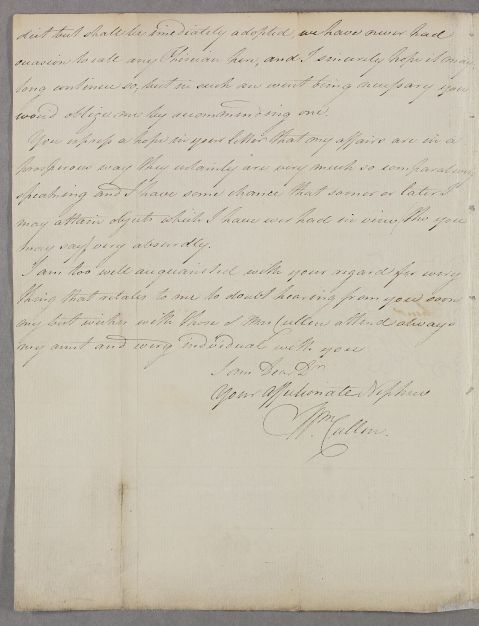 diet but shall be immediately adopted, we have never had
occasion to call any Phisician here, and I sincerely hope it may
long continue so, but in such an event being necessary you
would oblige me by recommending one.
You express a hope in your letter that my affairs are in a
prosperous way they certainly are very much so comparatively
speaking and I have some chance that sooner or later I
may attain objects which I have ever had in view, tho' you
may say very absurdly.
I am too well acquainted with your regard for every
thing that relates to me to doubt hearing from you soon
my best wishes with those of Mrs Cullen attend always
my aunt and every individual with you
I am Dear Dr
Your affectionate Nephew
Wm Cullen.